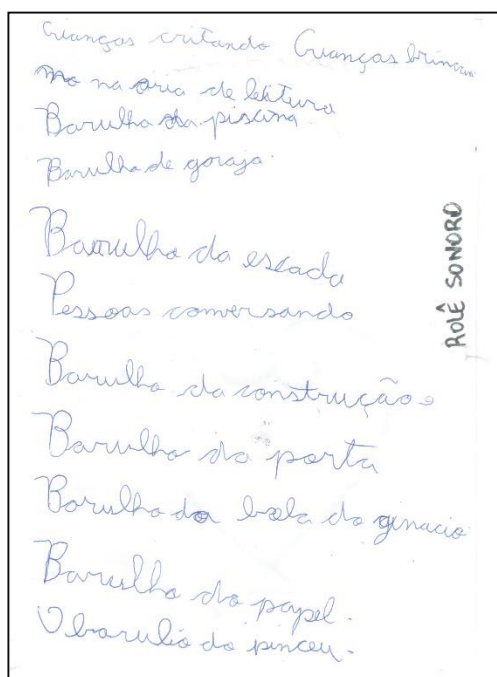 Crianças critando Crianças brincan
mo na aria de leitura
Barulho da piscina.
Barulho de goraja.
Barrulho da escada
Pessoas conversando
Barulho da construção
Barulho da porta
Barulho da bola do ginacio
Barulho do papel.
O barulio do pinceu.
ROLÊ SONORO